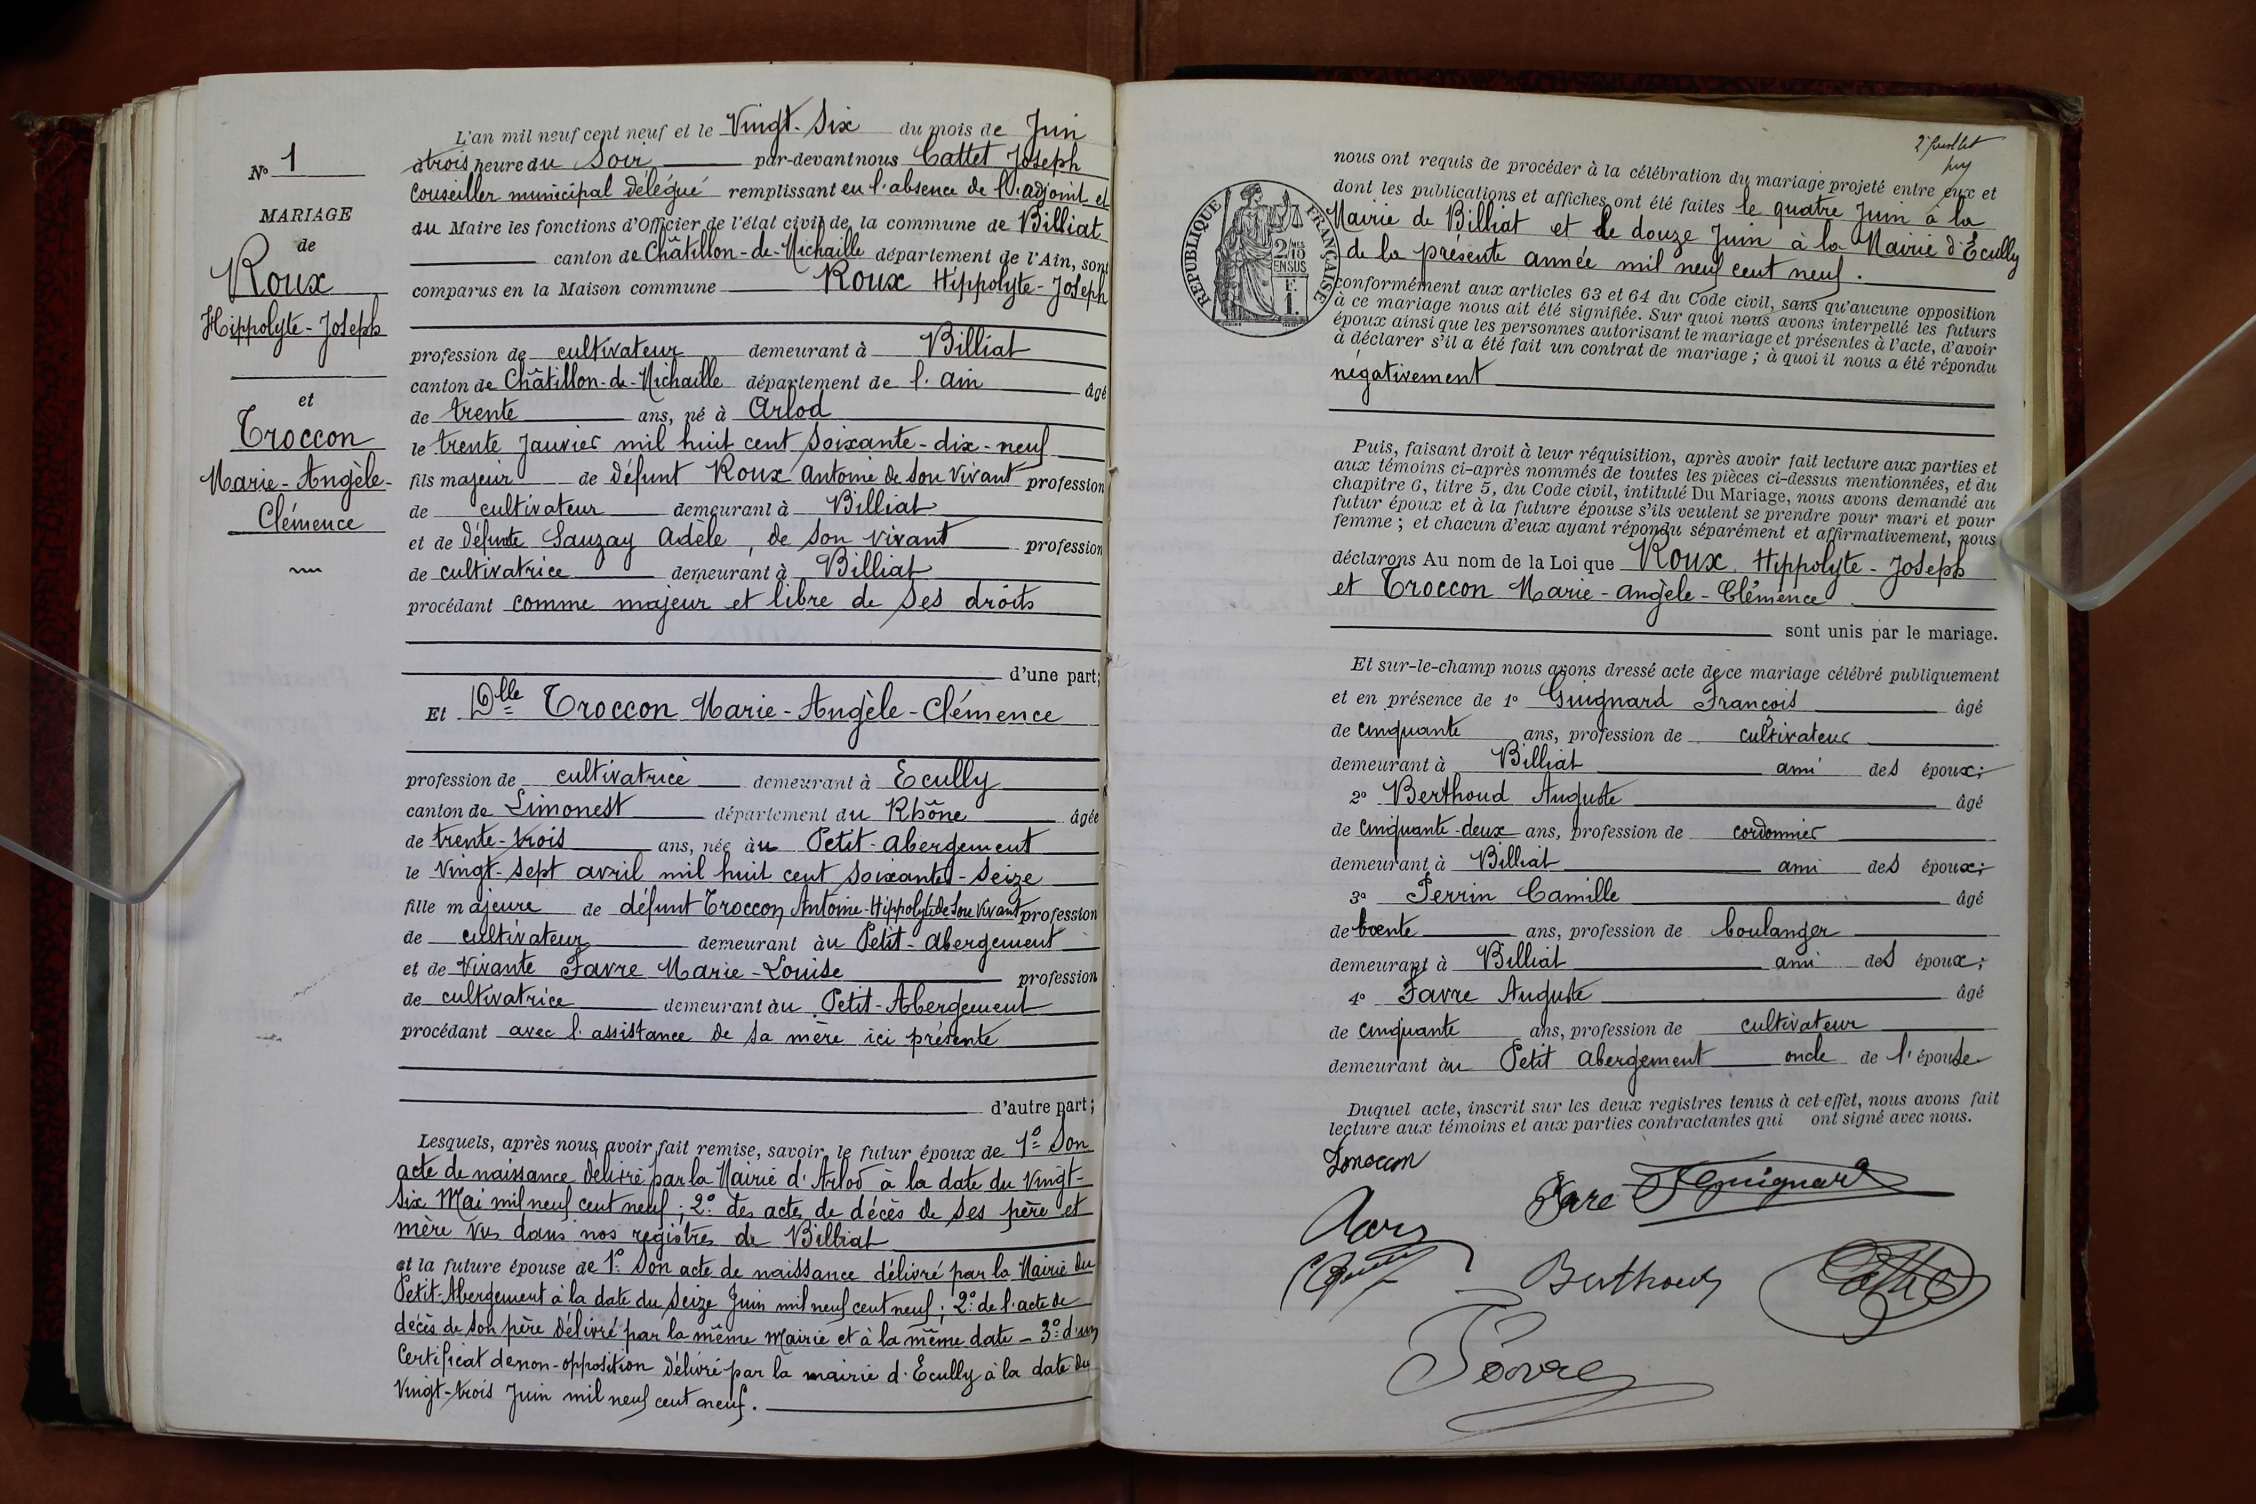 N° 1
MARIAGE
de
Roux
Hippolyte-Joseph
et
Troccon
Marie-Angèle-
Clémence
L'an mil neuf cent neuf et le Vingt-Six du mois de Juin
à trois heure du Soir par-devant nous Cattet Joseph
Conseiller municipal délégué remplissant en l'absence de l'adjoint et
du Maire les fonctions d'Officier de l'état civil de la commune de Billiat
canton de Châtillon-de-Michaille département de l'Ain, sont
comparus en la Maison commune Roux Hippolyte-Joseph
profession de cultivateur demeurant à Billiat
canton de Châtillon-de-Michaille département de l'ain âgé
de trente ans, né à Arlod
le trente Janvier mil huit cent soixante-dix-neuf
fils majeur de défunt Roux Antoine de son vivant profession
de cultivateur demeurant à Billiat
et de défunte Sauzay Adèle, de son vivant profession
de cultivatrice demeurant à Billiat
procédant comme majeur et libre de ses droits
d'une part;
Et Dlle Troccon Marie-Angèle-Clémence
profession de cultivatrice demeurant à Ecully
canton de Limonest département du Rhône âgée
de trente-trois ans, née au Petit-Abergement
le Vingt-sept avril mil huit cent soixante-seize
fille majeure de défunt Troccon Antoine-Hippolyte de son vivant profession
de cultivateur demeurant au Petit-Abergement
et de Vivante Favre Marie-Louise profession
de cultivatrice demeurant au Petit-Abergement
procédant avec l'assistance de sa mère ici présente
d'autre part;
Lesquels, après nous avoir fait remise, savoir, le futur époux de 1° Son
acte de naissance délivré par la Mairie d'Arlod à la date du Vingt-
six Mai mil neuf cent neuf; 2° des actes de décès de ses père et
mère vus dans nos registres de Billiat
et la future épouse de 1° Son acte de naissance délivré par la Mairie du
Petit-Abergement à la date du Seize Juin mil neuf cent neuf; 2° de l'acte de
décès de son père délivré par la même Mairie et à la même date - 3° d'un
Certificat de non-opposition délivré par la mairie d'Ecully à la date du
Vingt-trois Juin mil neuf cent neuf.
2e feuillet
RÉPUBLIQUE FRANÇAISE
2/10mes
EN SUS
F.
1.
nous ont requis de procéder à la célébration du mariage projeté entre eux et
dont les publications et affiches ont été faites le quatre Juin à la
Mairie de Billiat et le douze Juin à la Mairie d'Ecully
de la présente année mil neuf cent neuf.
conformément aux articles 63 et 64 du Code civil, sans qu'aucune opposition
à ce mariage nous ait été signifiée. Sur quoi nous avons interpellé les futurs
époux ainsi que les personnes autorisant le mariage et présentes à l'acte, d'avoir
à déclarer s'il a été fait un contrat de mariage; à quoi il nous a été répondu
négativement
Puis, faisant droit à leur réquisition, après avoir fait lecture aux parties et
aux témoins ci-après nommés de toutes les pièces ci-dessus mentionnées, et du
chapitre 6, titre 5, du Code civil, intitulé Du Mariage, nous avons demandé au
futur époux et à la future épouse s'ils veulent se prendre pour mari et pour
femme; et chacun d'eux ayant répondu séparément et affirmativement, nous
déclarons Au nom de la Loi que Roux Hippolyte-Joseph
et Troccon Marie-Angèle-Clémence
sont unis par le mariage.
Et sur-le-champ nous avons dressé acte de ce mariage célébré publiquement
et en présence de 1° Guignard François âgé
de cinquante ans, profession de cultivateur
demeurant à Billiat ami des époux;
2° Berthoud Auguste âgé
de cinquante-deux ans, profession de cordonnier
demeurant à Billiat ami des époux;
3° Perrin Camille âgé
de trente ans, profession de boulanger
demeurant à Billiat ami des époux;
4° Favre Auguste âgé
de cinquante ans, profession de cultivateur
demeurant au Petit Abergement oncle de l'épouse
Duquel acte, inscrit sur les deux registres tenus à cet effet, nous avons fait
lecture aux témoins et aux parties contractantes qui ont signé avec nous.
Guignard
Berthoud
Favre